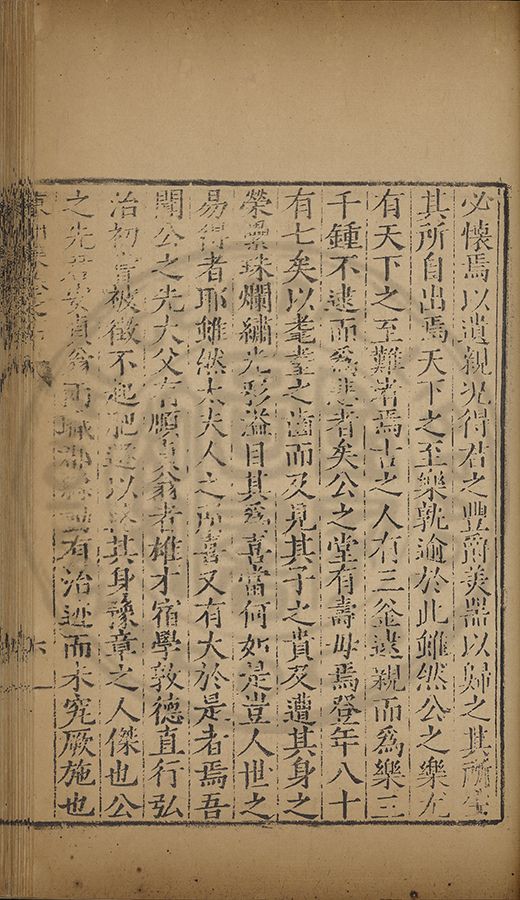 必懷焉以遺親况得君之豐爵美器以歸之其所
其所自出焉天下之至樂孰逾於此雖然公之樂尤
有天下之至難者焉古之人有三釜逮親而爲樂三
千鍾不逮而爲悲者矣公之堂有壽母焉登年八十
有七矣以耄耋之齒而及見其子之貴及遭其身之
榮纍珠爛繡光彩溢目其爲喜當何如是豈人世之
易得者耶雖然太夫人之所喜又有大於是者焉吾
聞公之先大父有順翁者雄才宿學敦德直行弘
治初嘗被徵不起肥遯以終其身豫章之人傑也公
之先君翁兩有治迹而未究厥施也